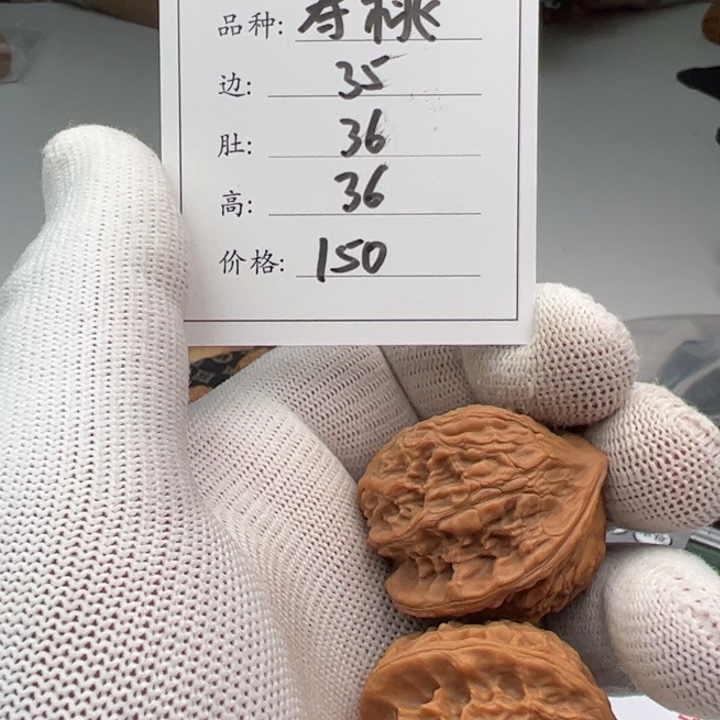 品种: 寿桃
边: 35
肚: 36
高: 36
价格: 150